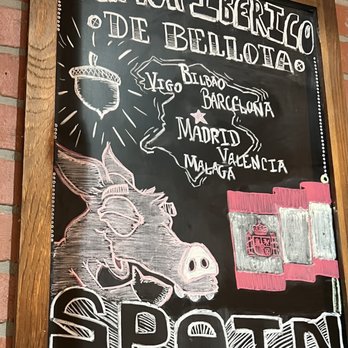 IBERICO
DE BELLOTA
BILBAO
VIGO
BARCELONA
MADRID
VALENCIA
MALAGA
SPAIN